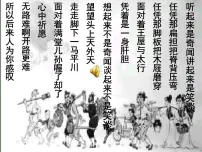 听起来是奇闻讲起来是笑谈
任凭那扁担把脊背压弯
任凭那脚板把木屐磨穿
面对着王屋与太行
凭着是一身肝胆
想起来不是奇闻谈起来不是笑谈
望望头上天外天
走走脚下一马平川
面对着满堂儿孙了却了
心中祈愿
无路难啊开路更难
所以后来人为你感叹